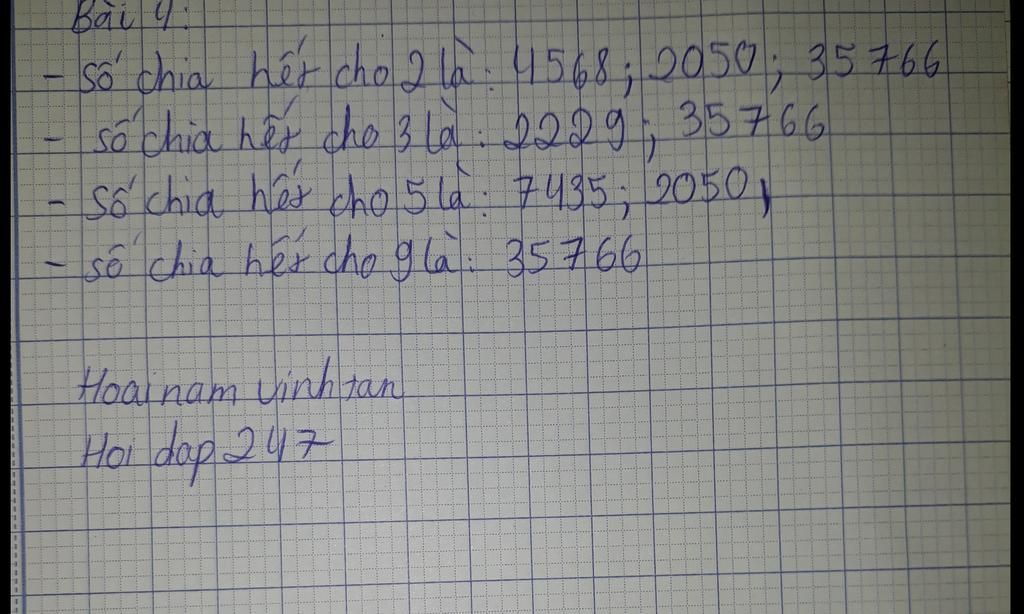 Bài 4:
- số chia hết cho 2 là: 4568; 2050; 35766
- số chia hết cho 3 là: 2229; 35766
- số chia hết cho 5 là: 7435; 2050,
- số chia hết cho 9 là: 35766
Hoai nam vinh tan
Hoi dap 247